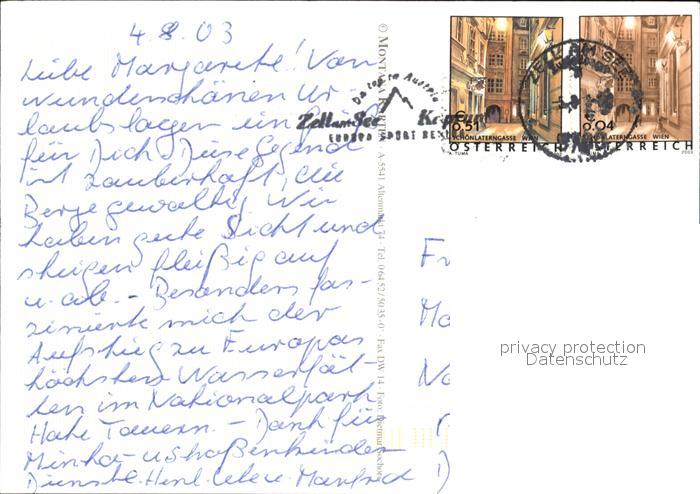 4.8.03
Liebe Margarete! Von
wunderschönen Ur-
laubstagen ein Gruß
für Dich. Diese Gegend
ist zauberhaft, die
Berge gewaltig. Wir
haben gute Sicht und
steigen fleißig auf
u. ab. - Besonders fas-
zinierte mich der
Aufstieg zu Europas
höchsten Wasserfäl-
len im Nationalpark
Hohe Tauern. - Dank für
Dienste. Herzl. Manfred
© MONTANA
A-5541 Altenmarkt 74 · Tel. 06452/5035-0 · Fax DW 14 · Foto: Dietmar Sochor
Zell am See Kaprun
EUROPA SPORT
ZELL AM SEE
0,51
SCHÖNLATERNGASSE WIEN
ÖSTERREICH
A. TUMA
0,04
SCHÖNLATERNGASSE WIEN
ÖSTERREICH
2003
Fr
Ma
privacy protection
Datenschutz